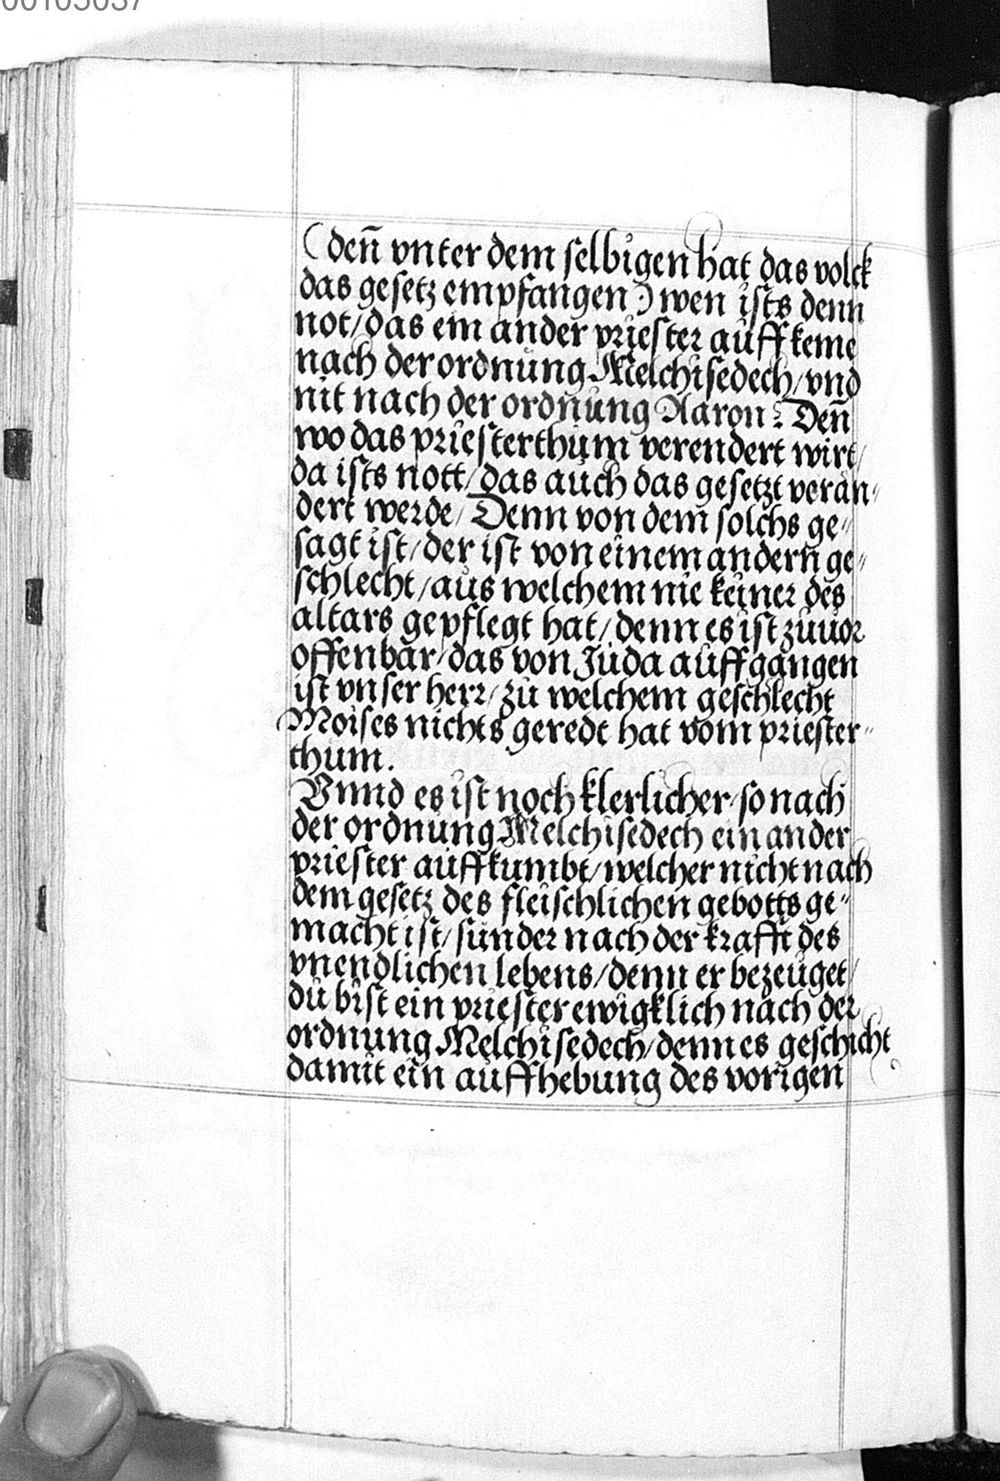 00105037
(den̄ vnter dem selbigen hat das volck
das gesetz empfangen) wen ists denn
not/das ein ander priester auffkeme
nach der ordnung Melchisedech/vnd
nit nach der ordn̄ung Aaron? Den̄
wo das priesterthum verendert wirt/
da ists nott/das auch das gesetzt verän⸗
dert werde/Denn von dem solchs ge⸗
sagt ist/der ist von einem andern̄ ge⸗
schlecht/aus welchem nie keiner des
altars gepflegt hat/denn es ist zuuor
offenbar/das von Juda auffgangen
ist vnser herr/zu welchem geschlecht
Moises nichts geredt hat vom priester⸗
thum.
Vnnd es ist noch klerlicher/so nach
der ordnung Melchisedech ein ander
priester auffkumbt/welcher nicht nach
dem gesetz des fleischlichen gebotts ge⸗
macht ist/sunder nach der krafft des
vnendlichen lebens/denn er bezeuget/
du bist ein priester ewigklich nach der
ordnung Melchisedech/denn es geschicht
damit ein auffhebung des vorigen